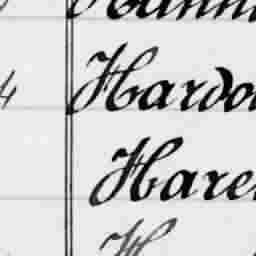 4 Hardo
Hare
H